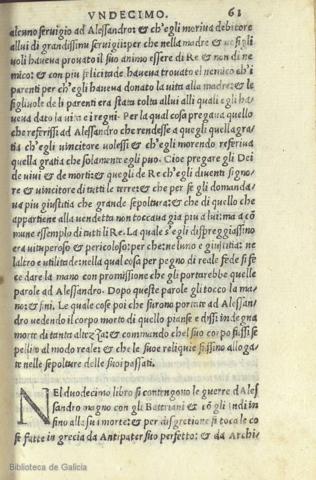 VNDECIMO. 63
alcuno seruigio ad Alessandro: & ch'egli moriua debitore
allui di grandissimi seruigii: per che nella madre & ne figli
uoli haueua prouato il suo animo essere di Re & non di ne
mico: & con piu felicitade haueua trouato el nemico ch'i
parenti per ch'egli haueua donato la uita alla madre: & le
figliuole de li parenti era stata tolta allui alli quali egli ha-
ueua dato la uita e i regni. Per la qual cosa pregaua quello
che referissi ad Alessandro che rendesse a quegli quella gra
tia ch'egli uincitore uolessi & ch'egli morendo referiua
quella gratia che solamente egli puo. Cioe pregare gli Dei
de uiui & de morti: & quegli de Re ch'egli diuenti signo-
re & uincitore di tutti le terre: & che per se gli domanda-
ua piu giustitia che grande sepoltura: & che di quello che
appartiene alla uendetta non toccaua gia piu a lui: ma a cõ
mune essemplo di tutti li Re. La quale s'egli dispreggiassino
era uituperoso & pericoloso: per che: nel uno e giustitia: ne
laltro e utilitade: nella qual cosa per pegno di reale fede si fe
ce dare la mano con promissione che gli portarebbe quelle
parole ad Alessandro. Dopo queste parole gli tocco la ma-
no: & finí. Le quale cose poi che furono portate ad Alessan-
dro uedendo il corpo morto di quello pianse e dissi: indegna
morte di tanta altezza: & commando chel suo corpo fussi se
pellito al modo reale: & che le suoe reliquie fussino alloga-
te nelle sepolture delle suoi passati.
NEl duodecimo libro si contengono le guerre d'Ales
sandro magno con gli Battriani & cõ gli indi in
fino alla sua morte: & per disgretione si tocale co
se fatte in grecia da Antipater suo perfetto: & da Archi-
Biblioteca de Galicia